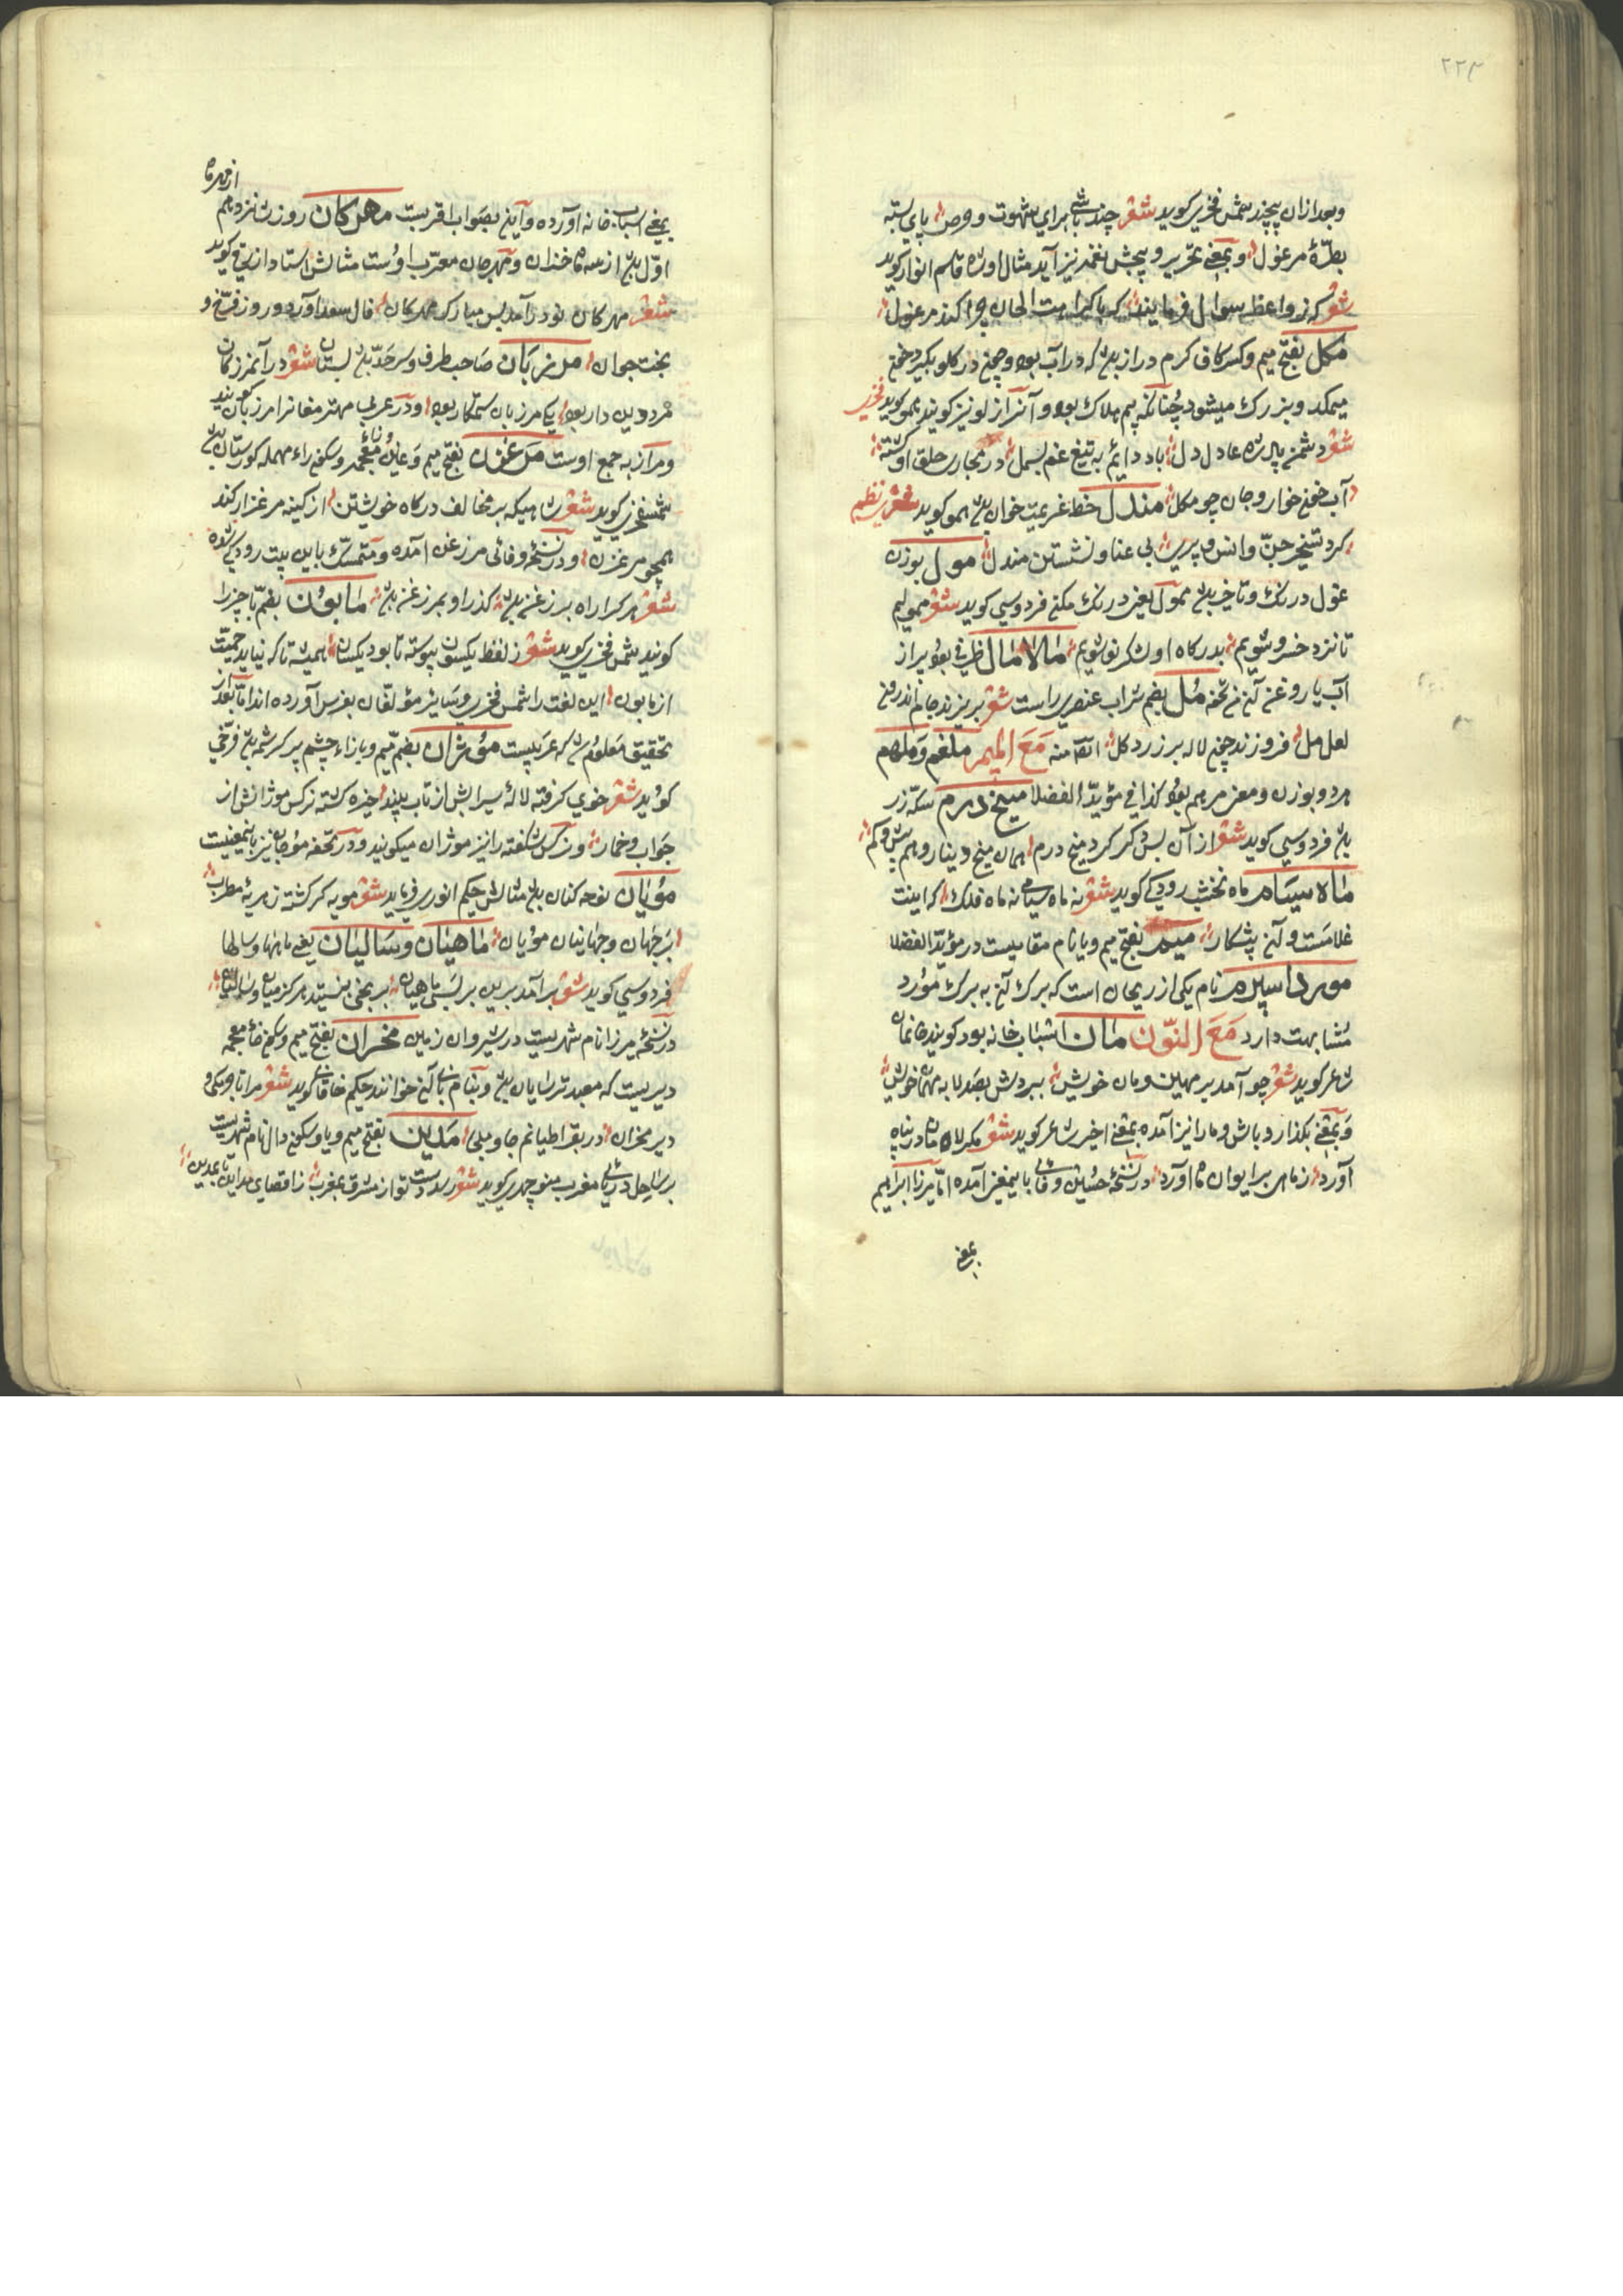 ٢٢٣
وبعد ازان پیچند شمس فخری کوید شعر چند باشی برای شهوت وحرص پای بسته
بطرّهٔ مرغول وبمعنی تحریر وپیچش نغمه نیز آید مثال اوشاه قاسم انوار کوید
شعر که زواعظ سوال فرمایند که باکراهت الحان چرا کند مرغول
مکل بفتح میم وکسر کاف کرم دراز باشد که در آب بود وچون در کلو بکیرد خون
میمکد وبزرک میشود چنانکه بیم هلاک بود وآنرا زلو نیز کویند همو کوید فخری
شعر دشمن پادشاه عادل دل باد دائم به تیغ غم بسمل در مجاری حلق او کشته
آب خون خوار وجان چو مکل مندل خط عزیمت خوان باشد همو کوید شعر نظم
کرد تسخیر جنّ وانس وپری بی عنا ونشستن مندل مول بوزن
غول درنک وتاخیر باشد ممول یعنی درنک مکن فردوسی کوید شعر ممولیم
تا نزد خسرو شویم بدرکاه او لشکر نو شویم مالامال ظرفی بود پر از
آب یا روغن آن تحفه مل بضم شراب عنصری راست شعر بریزند جام اندرون
لعل مل فروزند چون لاله بر زرد کل انتها منه مع المیم ملغم وملهم
هر دو بوزن ومعنی مرهم بود کذا فی مؤید الفضلا میخ درم سکهٔ زر
باشد فردوسی کوید شعر از آن پس دکر کرد میخ درم همان میخ دینار وهم بیش وکم
ماه سیام ماه نخشب رودکی کوید شعر نه ماه سیامی نه ماه فلک که اینت
غلامست وآن پیشکار میم بفتح میم ویا نام مقامیست در مؤید الفضلا
مورد اسپرم نام یکی از ریحان است که برک آن به برک مورد
مشابهت دارد مع النّون مان اسباب خانه بود کویند خانمان
شاعر کوید شعر چو آمد بر میهن ومان خویش ببردش بصد لابه مهمان خویش
وبمعنی بکذار وباش ومارا نیز آمده بمعنی اخیر شاعر کوید شعر مکر لاله مان در پناه
آورد زمان بر ایوان ماه آورد در نسخهٔ حسین وفائی باین معنی آمده امّا میرزا ابراهیم
بمعنی
بمعنی اسباب خانه آورده وآن بصواب اقربست مهرکان روز شانزدهم
از مهر ماه
اوّل باشد از سه ماه خزان ومهرجان معرّب اوست مثالش استاد ازرقی کوید
شعر مهرکان نو درآمد بس مبارک مهرکان فال سعد آورد وروز فرّخ و
بخت جوان مرزبان صاحب طرف وسرحدّ باشد بستان شعر در آنمرز کان
مرد دین دار بود یکی مرزبان ستمکار بود ودر عربی مهتر مغانرا مرزبان کویند
ومرازبه جمع اوست مرغزن بفتح میم وغین معجمه وسکون راء مهمله کورستان باشد
شمس فخری کوید شعر شاهیکه بر مخالف درکاه خویشتن از کینه مرغزار کند
همچو مرغزن ودر نسخهٔ وفائی مرزغن آمده ومتمسک باین بیت رودکی شده
شعر هرکرا راه بر زغن باشد کذر او بمرزغن باشد مابون بضم با حیز را
کویند شمس فخری کوید شعر ز لفظ یکسون پیوسته تا بود یکسان همیشه تا که نیاید حمیّت
از مابون این لغت را شمس فخری وسایر مؤلفان بفرس آورده اند امّا بعد از
تحقیق معلوم شد که عربیست موژان بضم میم وبا زاء چشم پر کرشمه باشد فرّخی
کوید شعر خوی کرفته لالهٔ سیرابش از تاب نبید خیره کشته نرکس موژانش از
خواب وخمار ونرکس شکفته را نیز موژان میکویند ودر تحفه موجان نیز باینمعنیست
مویان نوحه کنان باشد مثالش حکیم انوری فرماید شعر مویه کر کشته زهرهٔ مطرب
بر جهان وجهانیان مویان ماهیان وسالیان یعنی ماهها وسالها
فردوسی کوید شعر برآمد برین بر بسی ماهیان بر بختی نبستند مرکز میان وسالیان
در نسخهٔ میرزا نام شهریست در شیروان زمین مخران بفتح میم وسکون خاء معجمه
دیریست که معبد ترسایان باشد وبنام بانی آن خوانند حکیم خاقانی کوید شعر مرا تا ویکی و
دیر مخران در بقراطیانم جا وملجی مدین بفتح میم ویا وسکون دال نام شهریست
بر ساحل دریای مغرب منوچهری کوید شعر رسد دست تو از مشرق بمغرب ز اقصای مداین تا بمدین